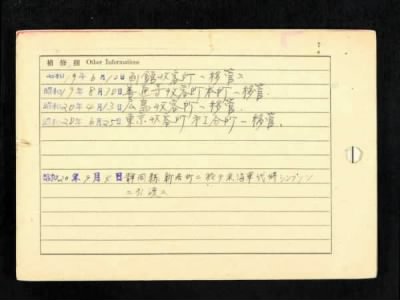 補修欄 Other Informations
昭和19年6月12日函館收容所へ移管ス
昭和19年8月30日善通寺收容所本所へ移管.
昭和20年4月13日廣島收容所へ移管ス
昭和20年6月25日東京收容所第1分所へ移管.
昭和20年9月5日静岡縣新居町ニ於テ米海軍代将シンプソン
ニ引渡ス